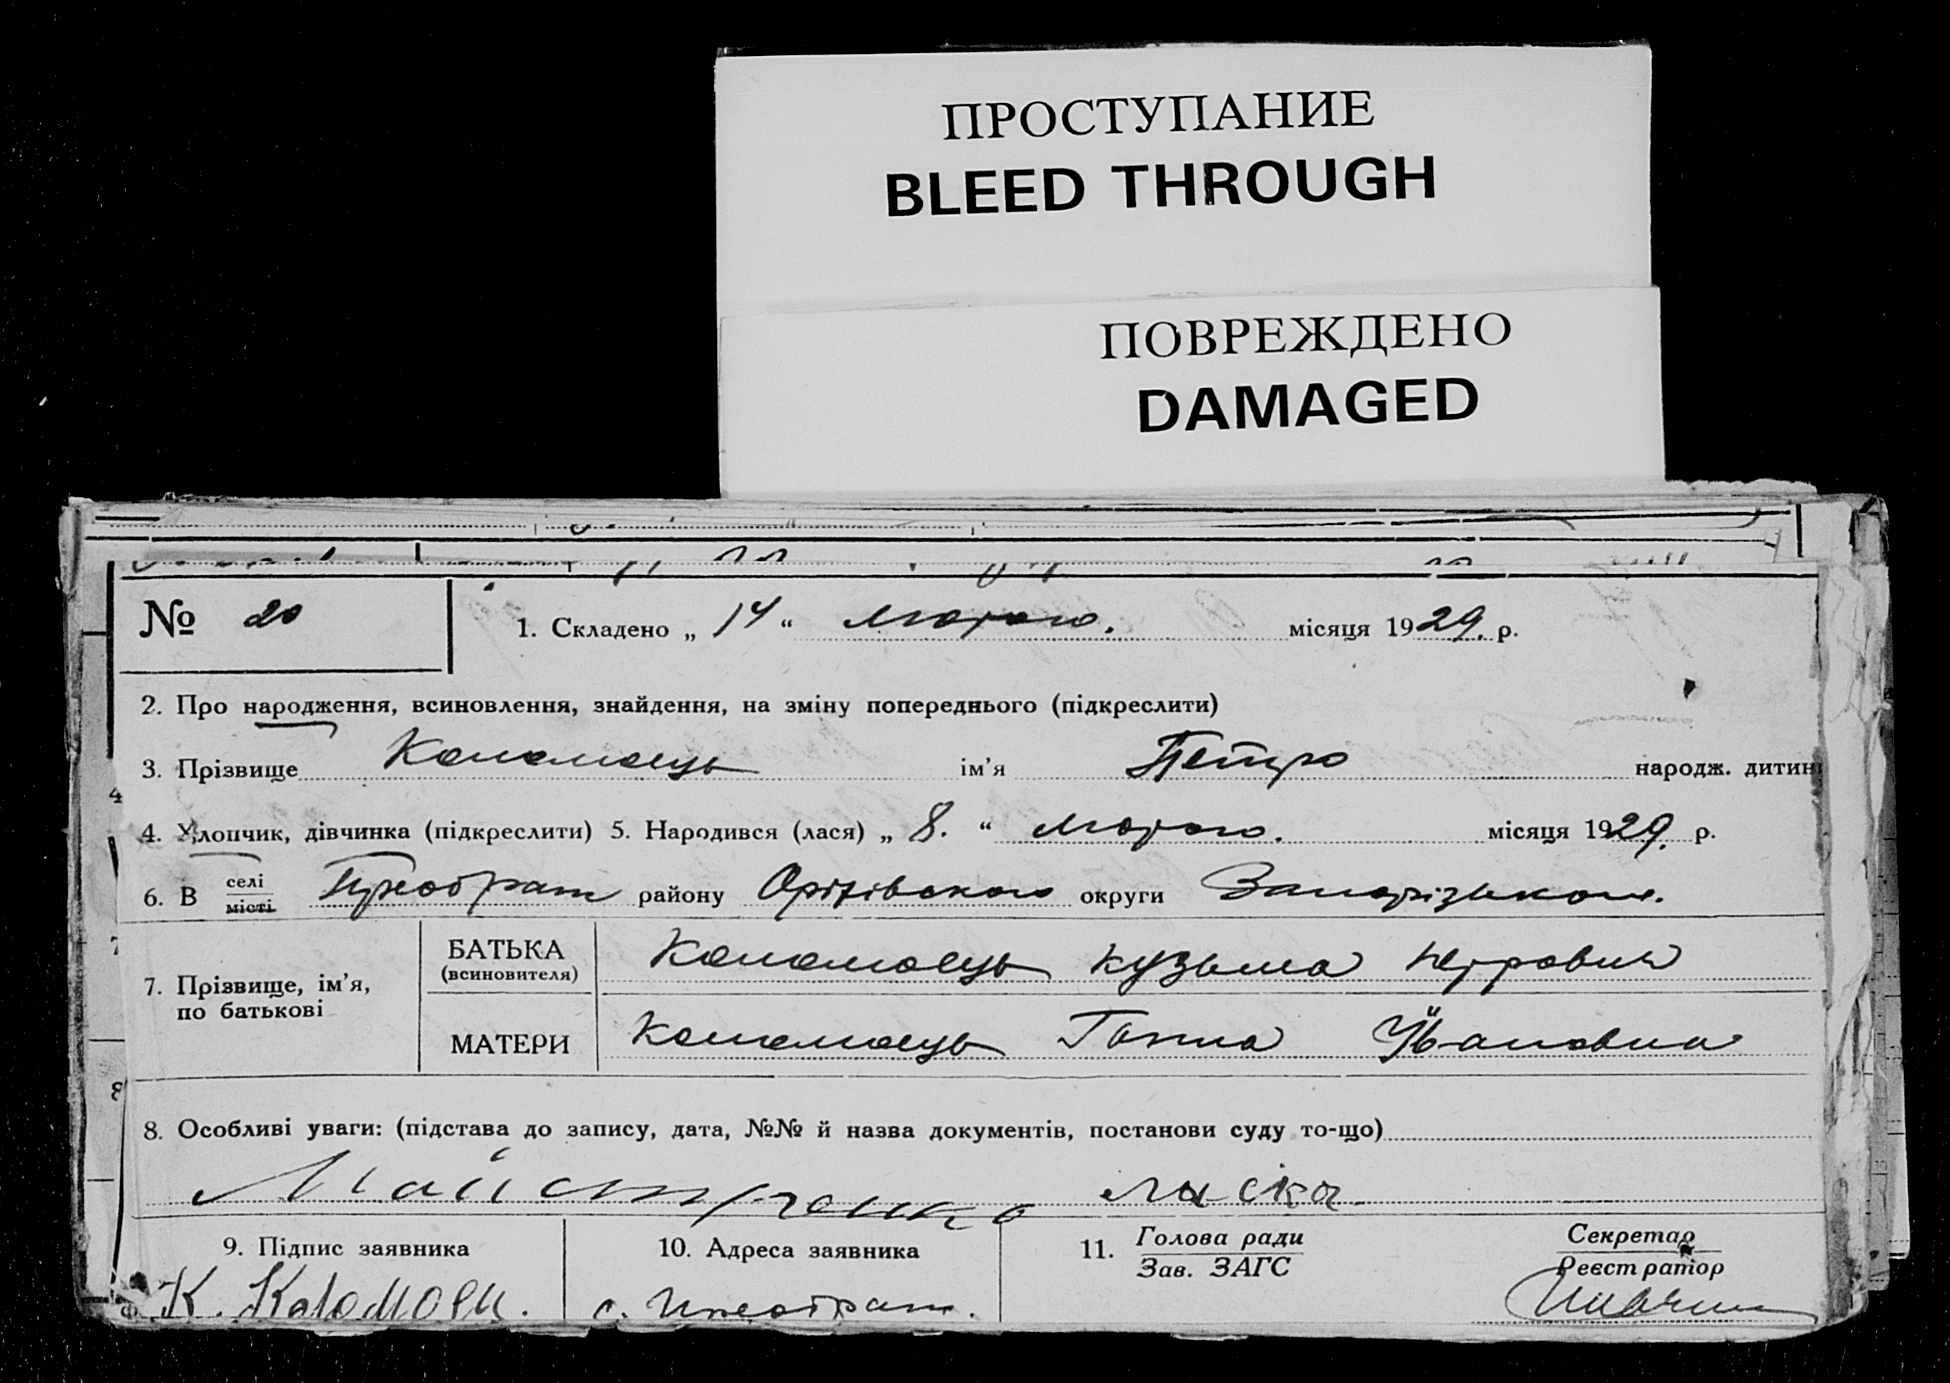 ПРОСТУПАНИЕ
BLEED THROUGH
ПОВРЕЖДЕНО
DAMAGED
№ 20
1. Складено „ 14 “ лютого. місяця 1929. р.
2. Про народження, всиновлення, знайдення, на зміну попереднього (підкреслити)
3. Прізвище Коломоєць ім’я Петро народж. дитин
4. Хлопчик, дівчинка (підкреслити) 5. Народився (лася) „ 8. “ лютого. місяця 1929. р.
6. В селі місті Преображ району Оріхівського округи Запорізького.
7. Прізвище, ім’я, по батькові
БАТЬКА (всиновителя) Коломоєць Кузьма Петрович
МАТЕРИ Коломоєць Ганна Івановна
8. Особливі уваги: (підстава до запису, дата, №№ й назва документів, постанови суду то-що)
Майстренко
9. Підпис заявника
К. Коломоец.
10. Адреса заявника
с. Преображ.
11. Голова ради
Зав. ЗАГС
Секретар
Реєстратор